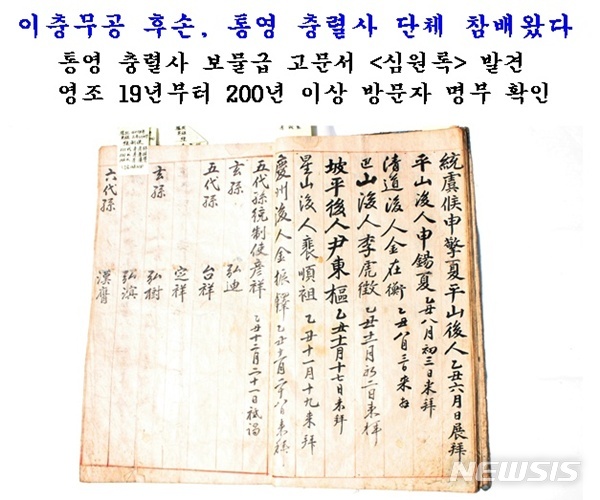 이충무공 후손, 통영 충렬사 단체 참배왔다
통영 충렬사 보물급 고문서 <심원록> 발견
영조 19년부터 200년 이상 방문자 명부 확인
統虞候申擎夏平山後人乙丑六月日展拜
平山後人申錫夏乙丑八月初三日來拜
清道後人金在衡乙丑八月三日來拜
巴山後人李虎徵
坡平後人尹東樞乙丑十二月十七日來拜
星山後人裵順祖乙丑十一月十九來拜
慶州後人金振鐸
五代孫統制使彦祥乙丑十二月二十一日祗謁
玄孫 弘迪
五代孫 台祥
宅祥
玄孫 弘樹
弘濱
六代孫 漢膺
NEWSIS